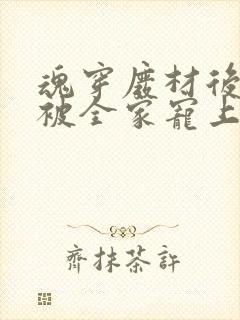 魂穿廢材後
被全家寵上
齊抹茶許